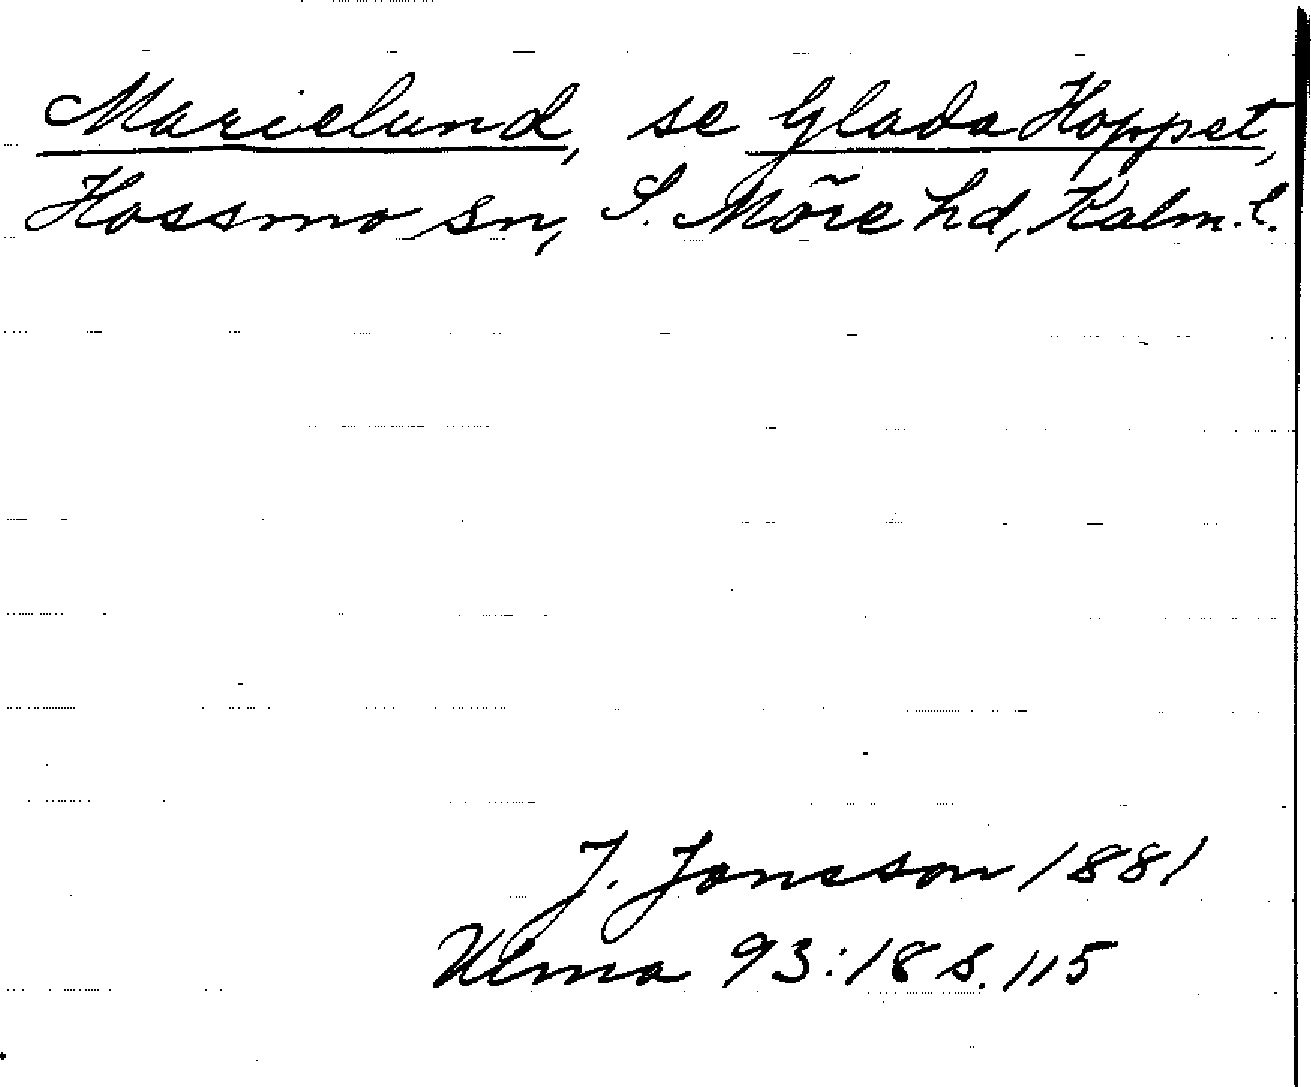 Marielund, se Glada Hoppet,
Hossmo sn, S. Möre hd, Kalm. l.
J. Jonsson 1881
Ulma 93:18 s. 115